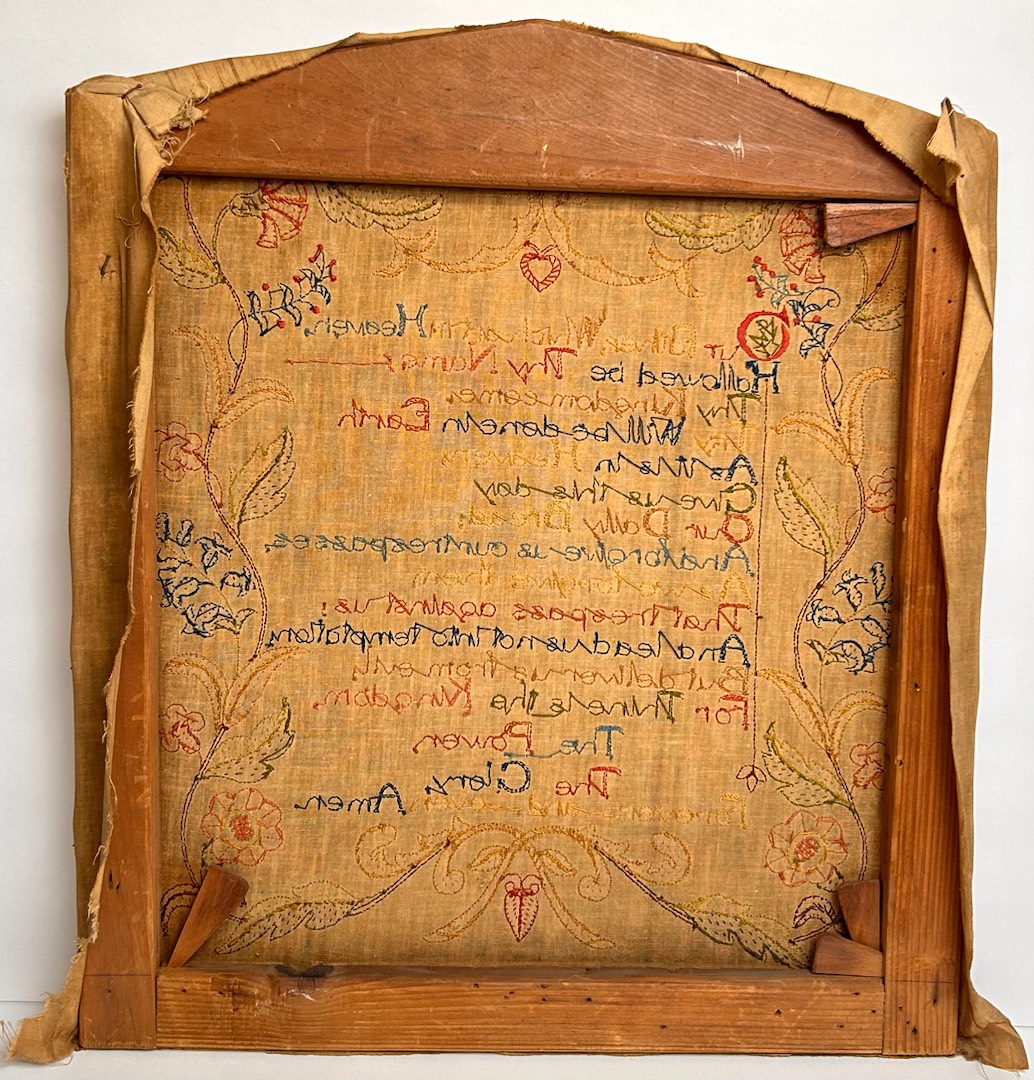 Our Father Which art in Heaven,
Hallowed be Thy Name;
Thy Kingdom come,
Thy Will be done In Earth
As It Is In Heaven.
Give us this day
Our Daily Bread;
And forgive us our trespasses,
As we forgive them
That trespass against us;
And lead us not into temptation,
But deliver us from evil;
For Thine Is the Kingdom,
The Power,
The Glory,
Forever and ever Amen.